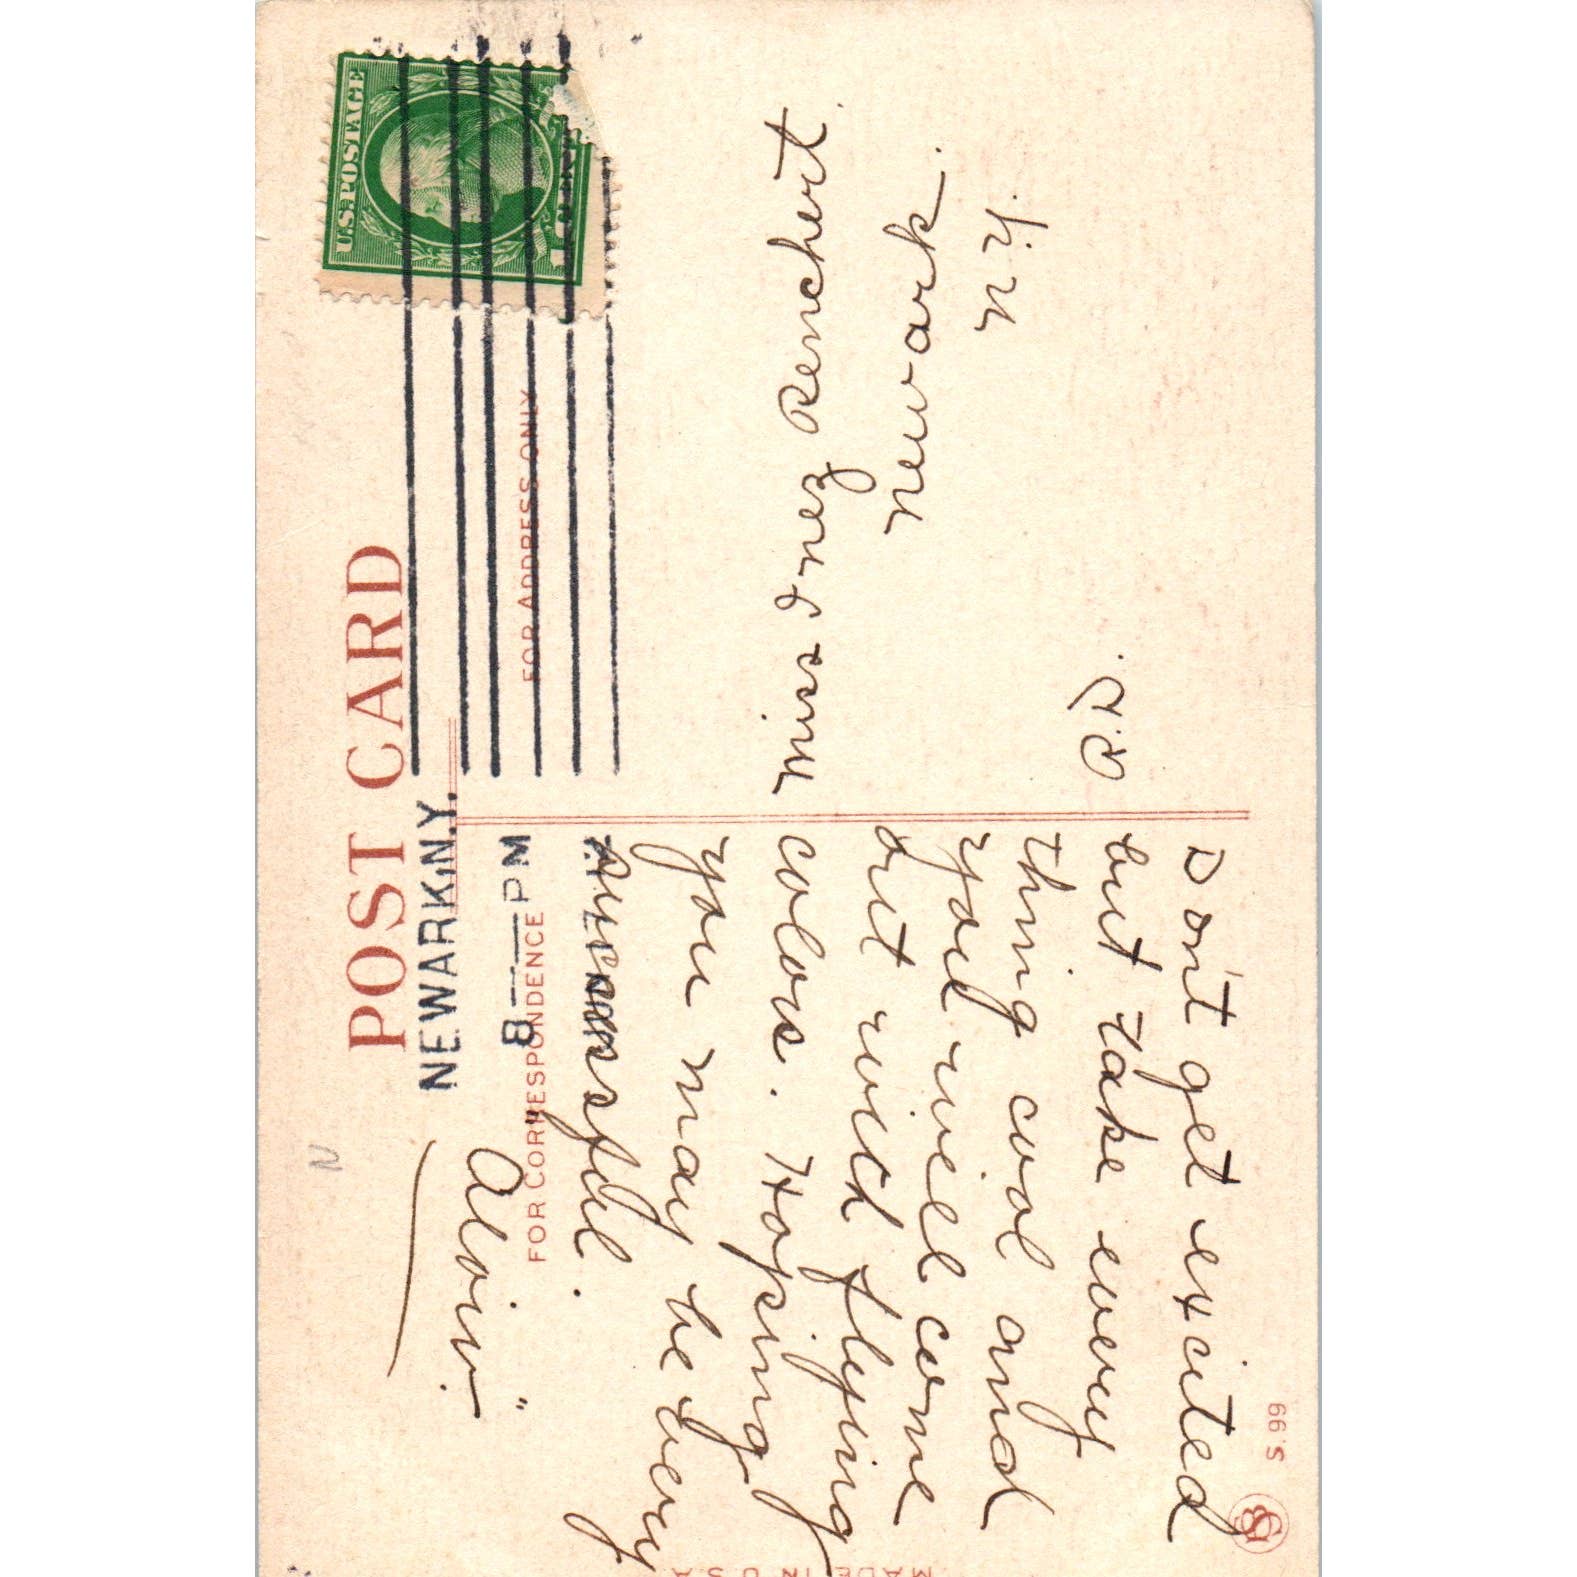 POST CARD
U.S. POSTAGE
NEWARK, N.Y.
8 — PM
FOR CORRESPONDENCE
FOR ADDRESS ONLY
Don't get excited
but take every
thing cool and
you will come
out with flying
colors. Hoping
you may be very
successful.
"Alvin."
Miss Inez Renchert
Newark.
N.Y.
R.D.
MADE IN U.S.A
S. 99